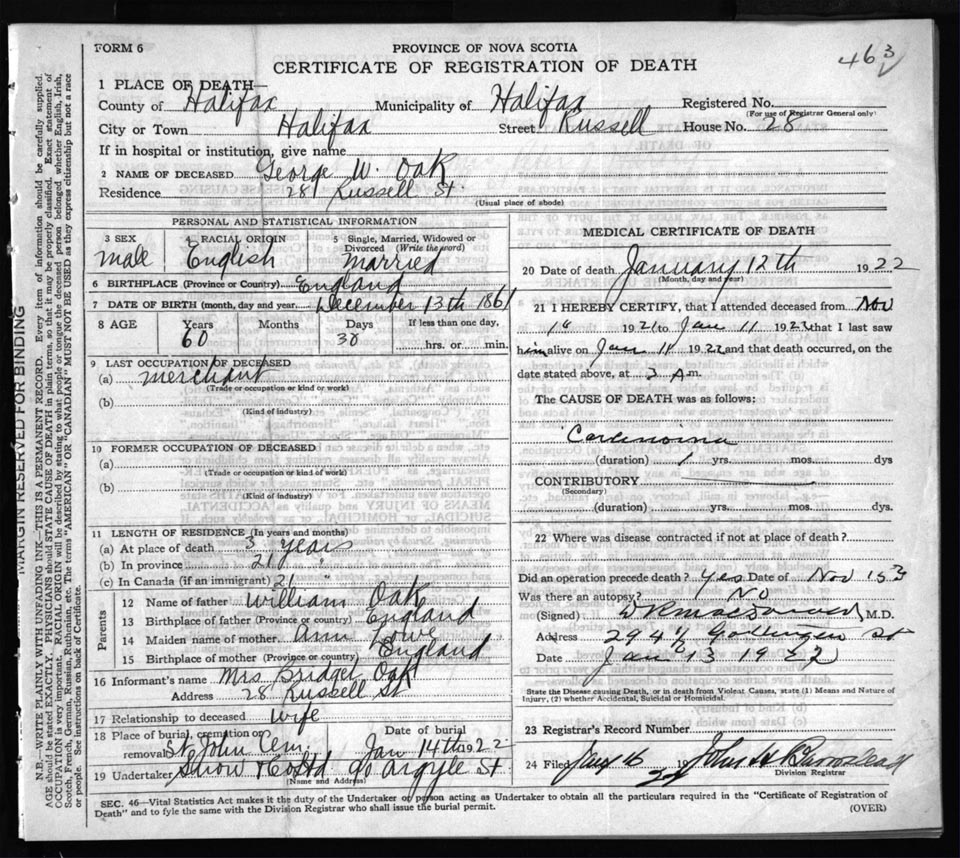 FORM 6
463
PROVINCE OF NOVA SCOTIA
CERTIFICATE OF REGISTRATION OF DEATH
1 PLACE OF DEATH—
County of Halifax Municipality of Halifax Registered No.
(For use of Registrar General only)
City or Town Halifax Street Russell House No. 28
If in hospital or institution, give name
2 NAME OF DECEASED George W. Oak
Residence 28 Russell St.
(Usual place of abode)
PERSONAL AND STATISTICAL INFORMATION
3 SEX male
4 RACIAL ORIGIN English
5 Single, Married, Widowed or Divorced (Write the word) married
6 BIRTHPLACE (Province or Country) England
7 DATE OF BIRTH (month, day and year) December 13th 1861
8 AGE Years 60 Months Days 30 If less than one day, hrs. or min.
9 LAST OCCUPATION OF DECEASED
(a) merchant
(Trade or occupation or kind or work)
(b)
(Kind of industry)
10 FORMER OCCUPATION OF DECEASED
(a)
(Trade or occupation or kind or work)
(b)
(Kind of industry)
11 LENGTH OF RESIDENCE (In years and months)
(a) At place of death 3 years
(b) In province 21 "
(c) In Canada (if an immigrant) 21 "
Parents
12 Name of father William Oak
13 Birthplace of father (Province or country) England
14 Maiden name of mother Ann Lowe
15 Birthplace of mother (Province or country) England
16 Informant's name Mrs Bridget Oak
Address 28 Russell St
17 Relationship to deceased wife
18 Place of burial, cremation or removal St John Cem Date of burial Jan 14th 1922
19 Undertaker Snow & Co Ltd 90 Argyle St
(Name and Address)
MEDICAL CERTIFICATE OF DEATH
20 Date of death January 12th 1922
(Month, day and year)
21 I HEREBY CERTIFY, that I attended deceased from Nov
1921 to Jan 11 1922 that I last saw
him alive on Jan 11 1922 and that death occurred, on the
date stated above, at 3 A m.
The CAUSE OF DEATH was as follows:
Carcinoma
(duration) 1 yrs. mos. dys
CONTRIBUTORY
(Secondary)
(duration) yrs. mos. dys
22 Where was disease contracted if not at place of death?
Did an operation precede death? Yes Date of Nov 15
Was there an autopsy? No
(Signed) M.D.
Address 294½ Gottingen St
Date Jan 13 1922
State the Disease causing Death, or in death from Violent Causes, state (1) Means and Nature of
Injury, (2) whether Accidental, Suicidal or Homicidal.
23 Registrar's Record Number
24 Filed Jany 16 1922 John H Barnstead
Division Registrar
SEC. 46—Vital Statistics Act makes it the duty of the Undertaker or person acting as Undertaker to obtain all the particulars required in the "Certificate of Registration of
Death" and to fyle the same with the Division Registrar who shall issue the burial permit.
(OVER)
MARGIN RESERVED FOR BINDING
N.B.—WRITE PLAINLY WITH UNFADING INK—THIS IS A PERMANENT RECORD. Every item of information should be carefully supplied.
AGE should be stated EXACTLY. PHYSICIANS should STATE CAUSE OF DEATH in plain terms, so that it may be properly classified. Exact statement of
OCCUPATION is very important. RACIAL ORIGIN will be described by stating to what people or tongue the deceased person belonged, whether English, Irish,
Scotch, French, German, Russian, Ruthenian, etc. The terms "AMERICAN" OR "CANADIAN" MUST NOT BE USED as they express citizenship but not a race
or people. See instructions on back of Certificate.